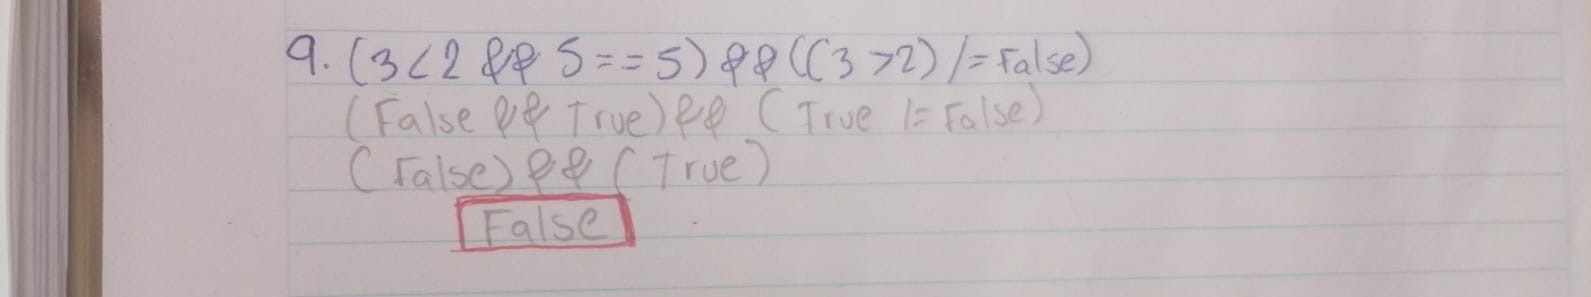 9. (3<2 && 5==5) && ((3>2) /= False)
(False && True) && (True /= False)
(False) && (True)
False